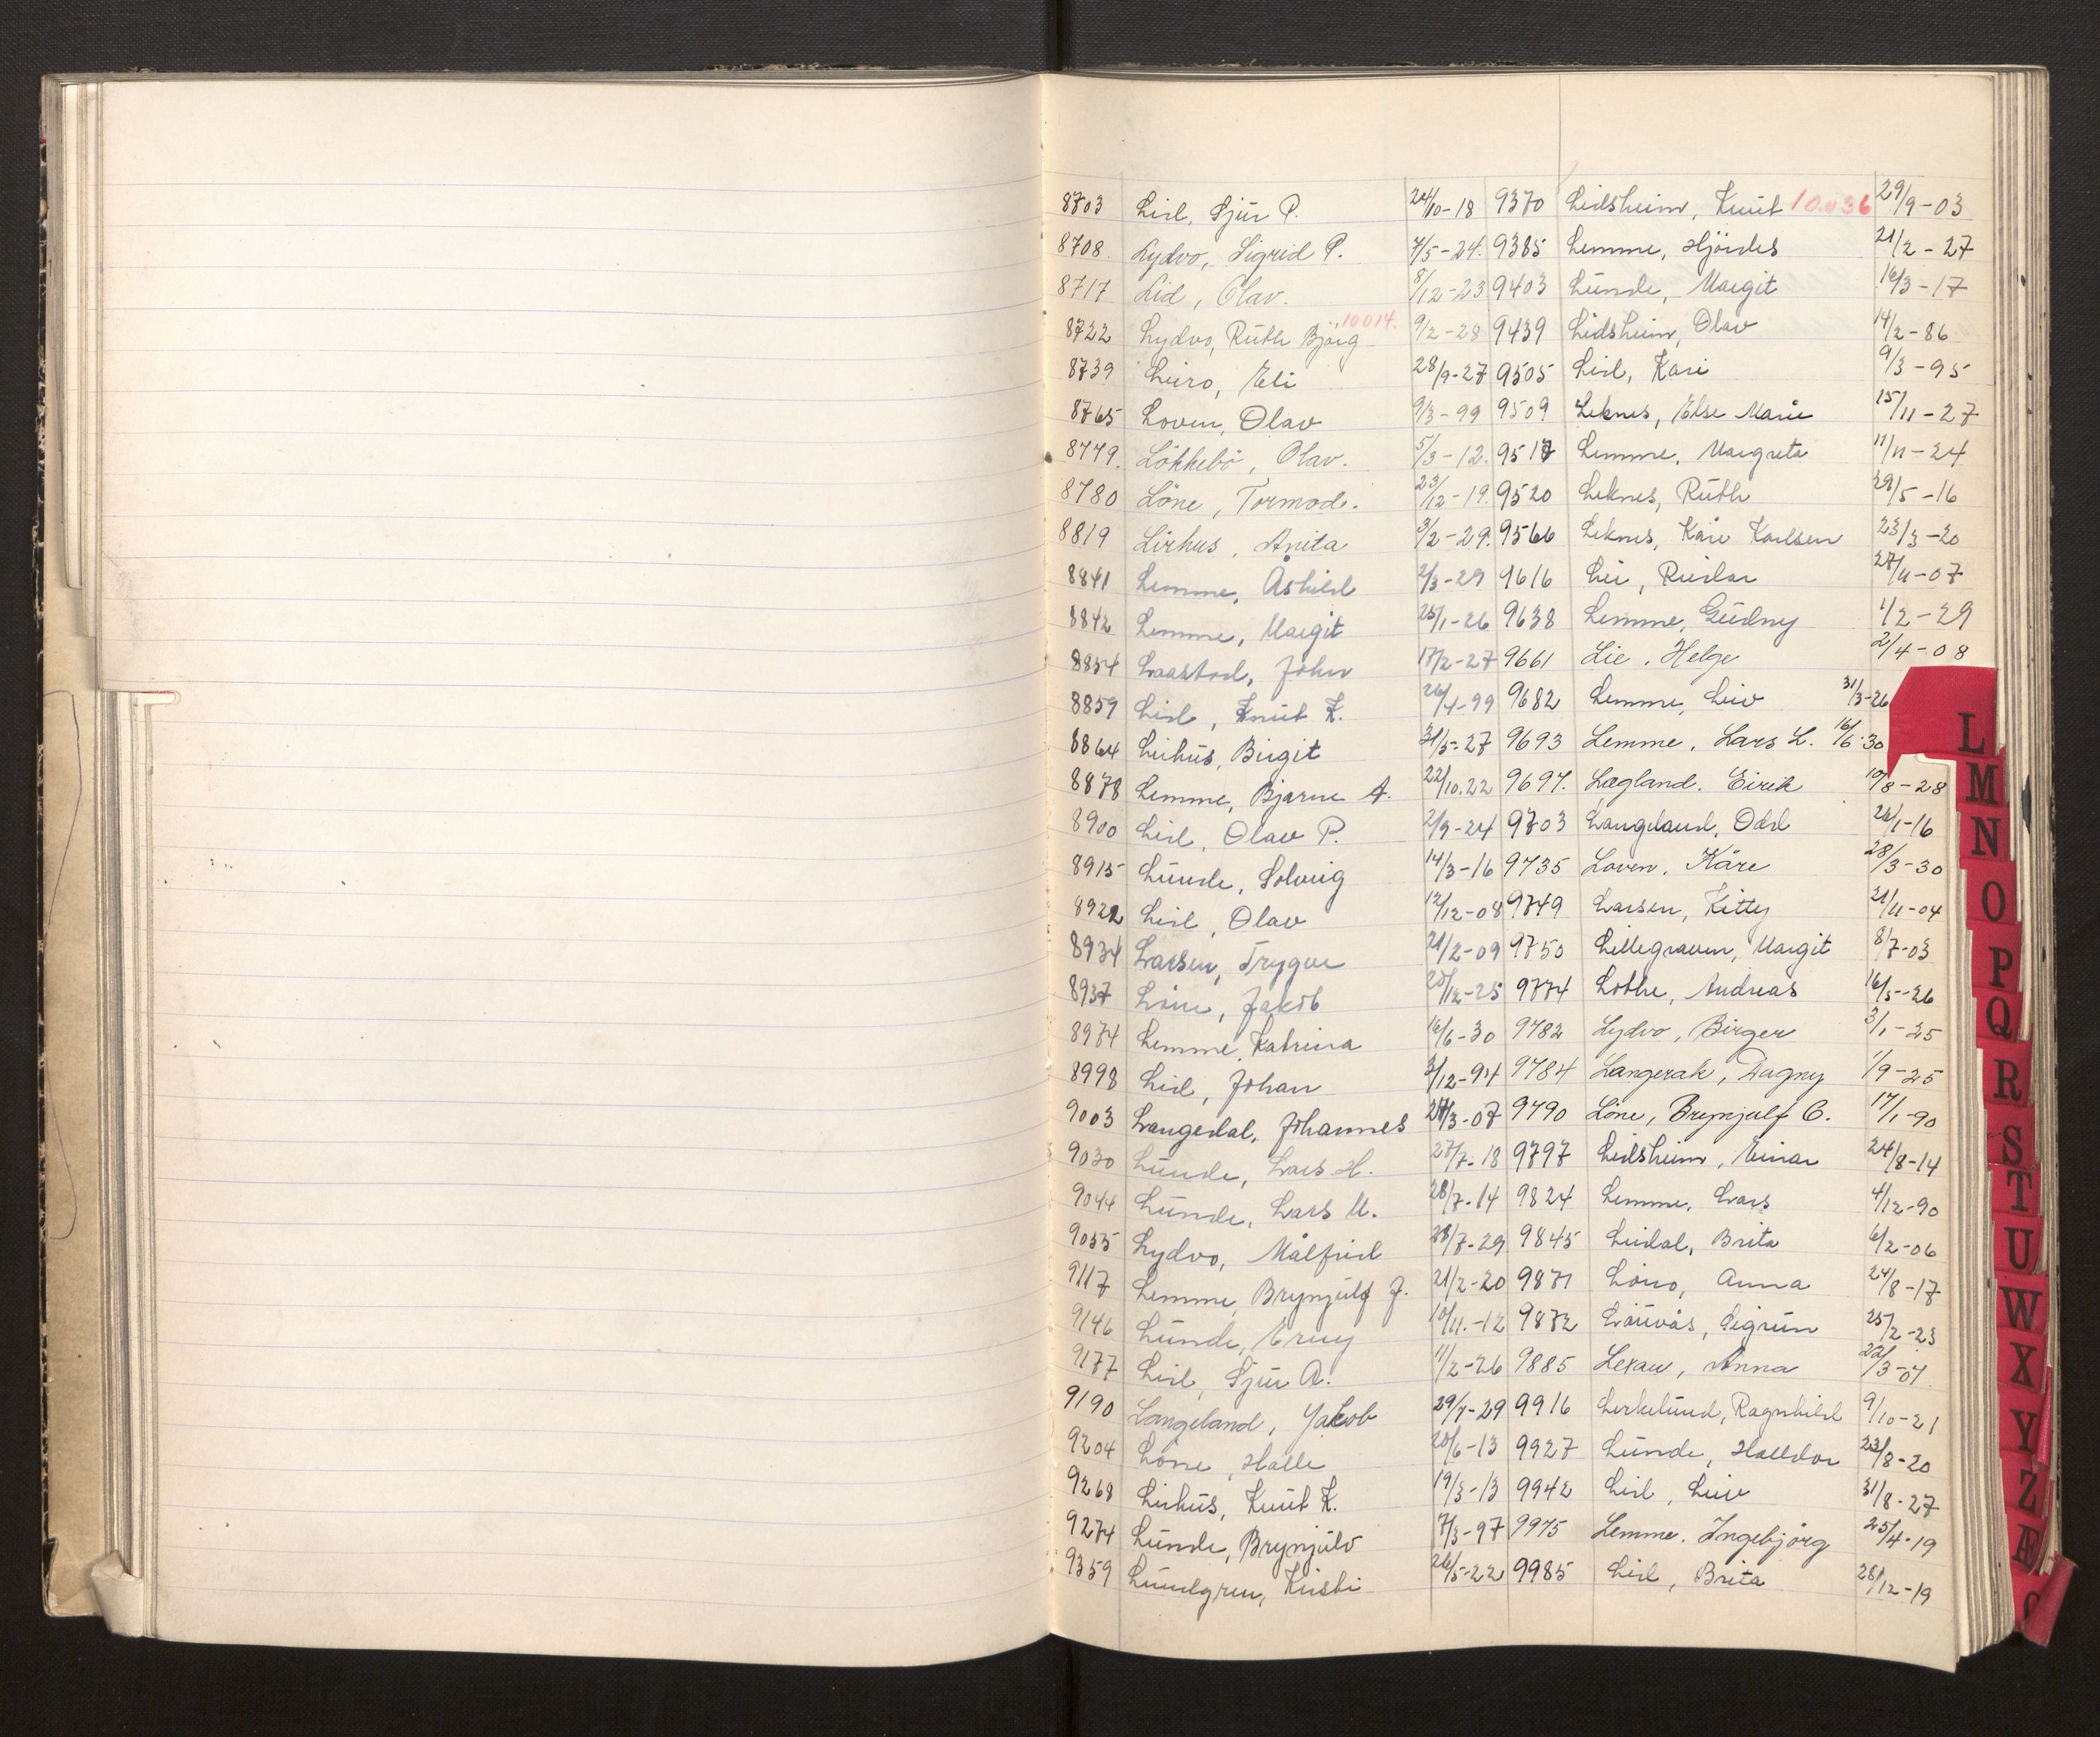 8703 Lid, Sjur P. 24/10-18 9370 Lidsheim, Knut 10.036 29/9-03
8708. Lydvo, Sigrid P. 7/5-24. 9385 Lemme, Hjördes 21/2-27
8717 Lid, Olav. 8/12-23 9403 Lunde, Margit 16/3-17
8722 Lydvo, Ruth Björg 10014. 9/2-28 9439 Lidsheim, Olav 14/2-86
8739 Liro, Eli 28/9-27 9505 Lid, Kari 9/3-95
8765 Loven, Olav 9/3-99 9509 Leknes, Else Marie 15/11-27
8779. Lökkebö, Olav. 5/3-12. 9517 Lemme, Margreta 11/11-24
8780 Löne, Tormod. 23/12-19. 9520 Leknes, Ruth 29/5-16
8819 Lirhus, Anita 3/2-29. 9566 Leknes, Kåre Karlsen 23/3-20
8841 Lemme, Åshild 2/3-29 9616 Lie, Reidar 27/11-07
8842 Lemme, Margit 25/1-26 9638 Lemme, Gudny 1/2-29
8854 Laastad, John 17/2-27 9661 Lie, Helge 2/4-08
8859 Lid, Knut K. 26/4-99 9682 Lemme, Leiv 31/3-26
8864 Lirhus, Birgit 31/5-27 9693 Lemme, Lars L. 16/6-30
8878 Lemme, Bjarne A. 22/10.22 9697. Lægland. Eirik 10/8-28
8900 Lid, Olav P. 2/9-24 9703 Langeland, Odd 26/1-16
8915 Lunde, Solveig 14/3-16 9735 Loven, Kåre 28/3-30
8922 Lid, Olav 12/12-08 9749 Larsen, Kitty 21/11-04
8934 Larsen, Trygve 21/2-09 9750 Lillegraven, Margit 8/7-03
8937 Löne, Jakob 20/12-25 9774 Lothe, Andreas 16/5-26
8974 Lemme, Katrina 16/6-30 9782 Lydvo, Birger 3/1-25
8998 Lid, Johan 3/12-94 9784 Langerak, Dagny 1/9-25
9003 Langedal, Johannes 27/3-07 9790 Löne, Brynjulf O. 17/1-90
9030 Lunde, Lars H. 27/7-18 9797 Lidsheim, Einar 24/8-14
9044 Lunde, Lars M. 28/7-14 9824 Lemme, Lars 4/12-90
9055 Lydvo, Målfrid 28/7-29 9845 Lirdal, Brita 6/2-06
9117 Lemme, Brynjulf J. 21/2-20 9871 Löno, Anna 24/8-17
9146 Lunde, Erny 10/11.-12 9872 Lauvås, Sigrun 25/2-23
9177 Lid, Sjur A. 11/2-26 9885 Lexau, Anna 22/3-07
9190 Langeland, Jakob 29/7-29 9916 Lerkelund, Ragnhild 9/10-21
9204 Löne, Halle 20/6-13 9927 Lunde, Halldor 23/8-20
9268 Lirhus, Knut K. 19/3-13 9942 Lid, Leiv 31/8-27
9274 Lunde, Brynjulv 7/3-97 9975 Lemme, Ingebjörg 25/4-19
9359 Lundgren, Kirsti 26/5-22 9985 Lid, Brita 28/12-19
L
M
N
O
P
Q
R
S
T
U
W
X
Y
Z
Æ